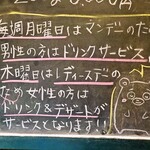 毎週月曜日はマンデーのため
男性の方はドリンクサービス
木曜日はレディースデーの
ため女性の方は
ドリンク&デザートが
サービスとなります!!